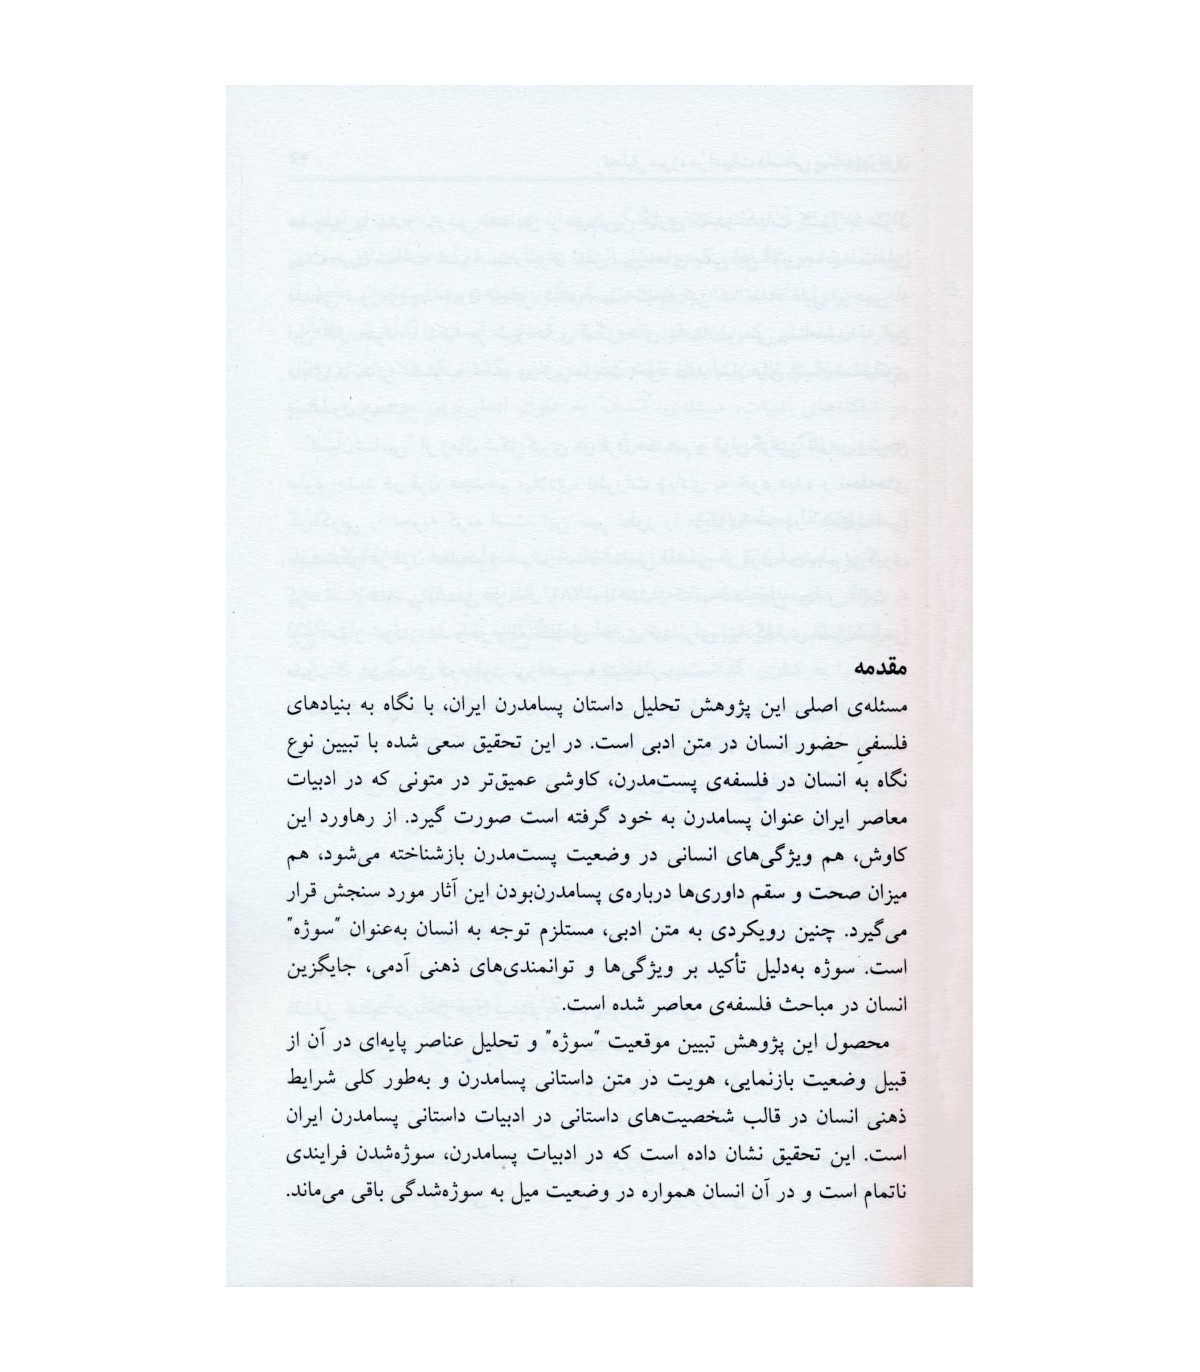 مقدمه
مسئله‌ی اصلی این پژوهش تحلیل داستان پسامدرن ایران، با نگاه به بنیادهای
فلسفیِ حضور انسان در متن ادبی است. در این تحقیق سعی شده با تبیین نوع
نگاه به انسان در فلسفه‌ی پست‌مدرن، کاوشی عمیق‌تر در متونی که در ادبیات
معاصر ایران عنوان پسامدرن به خود گرفته است صورت گیرد. از رهاورد این
کاوش، هم ویژگی‌های انسانی در وضعیت پست‌مدرن بازشناخته می‌شود، هم
میزان صحت و سقم داوری‌ها درباره‌ی پسامدرن‌بودن این آثار مورد سنجش قرار
می‌گیرد. چنین رویکردی به متن ادبی، مستلزم توجه به انسان به‌عنوان "سوژه"
است. سوژه به‌دلیل تأکید بر ویژگی‌ها و توانمندی‌های ذهنی آدمی، جایگزین
انسان در مباحث فلسفه‌ی معاصر شده است.
محصول این پژوهش تبیین موقعیت "سوژه" و تحلیل عناصر پایه‌ای در آن از
قبیل وضعیت بازنمایی، هویت در متن داستانی پسامدرن و به‌طور کلی شرایط
ذهنی انسان در قالب شخصیت‌های داستانی در ادبیات داستانی پسامدرن ایران
است. این تحقیق نشان داده است که در ادبیات پسامدرن، سوژه‌شدن فرایندی
ناتمام است و در آن انسان همواره در وضعیت میل به سوژه‌شدگی باقی می‌ماند.